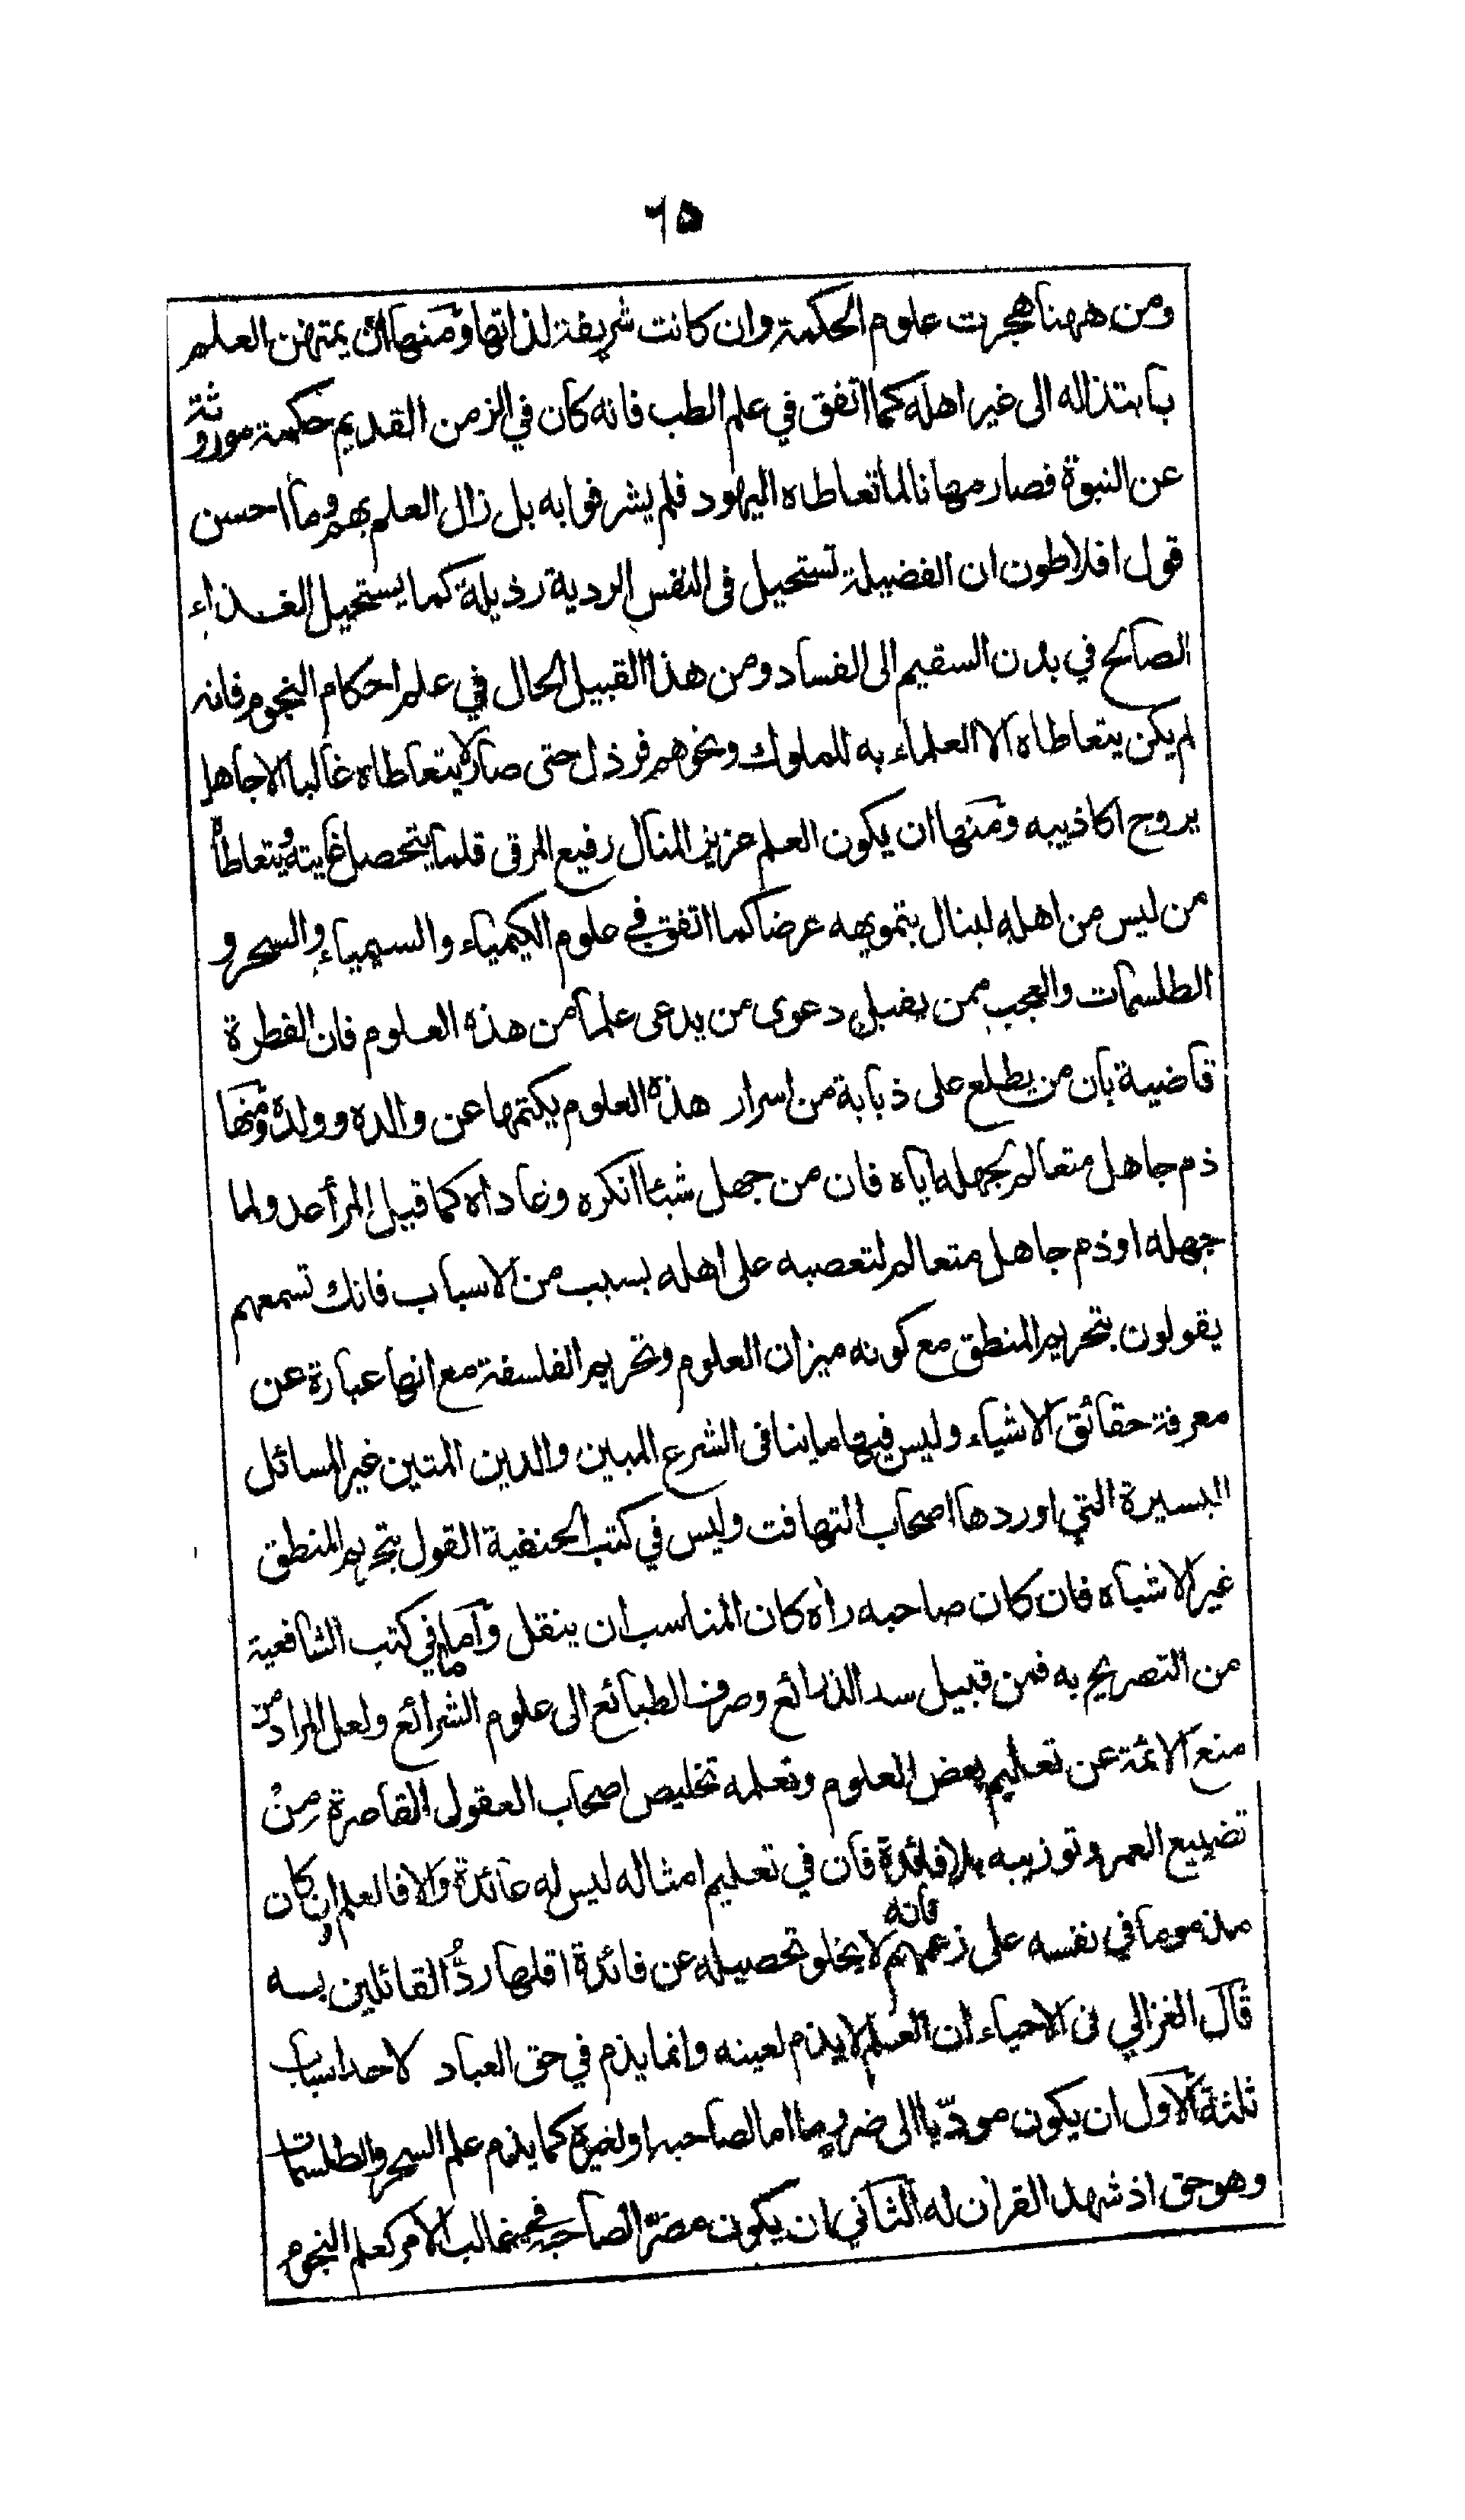 ٦٥
ومن ههنا هجرت علوم الحكمة وان كانت شريفة لذاتها ومنها ان يمتهن العلم
بابتذاله الى غير اهله كما اتفق في علم الطب فانه كان في الزمن القديم حكمة موروثة
عن النبوة فصار مهانا لما تعاطاه اليهود فلم يشرفوا به بل زال العلم بهم وما احسن
قول افلاطون ان الفضيلة تستحيل فى النفس الردية رذيلة كما يستحيل الغذاء
الصالح في بدن السقيم الى الفساد ومن هذا القبيل الحال في علم احكام النجوم فانه
لم يكن يتعاطاه الا العلماء به للملوك ونحوهم فرذل حتى صار لا يتعاطاه غالبا الا جاهل
يروج اكاذيبه ومنها ان يكون العلم عزيز المنال رفيع المرقى قلما يتحصل غايته ويتعاطاه
من ليس من اهله لينال بتمويهه عرضا كما اتفق في علوم الكيمياء والسيمياء والسحر و
الطلسمات والعجب ممن يقبل دعوى من يدعى علما من هذه العلوم فان الفطرة
قاضية بان من يطلع على ذبابة من اسرار هذه العلوم يكتمها عن والده وولده ومنها
ذم جاهل متعالم لجهله اياه فان من جهل شيئا انكره وعاداه كما قيل المرأ عدو لما
جهله او ذم جاهل متعالم لتعصبه على اهله بسبب من الاسباب فانك تسمعهم
يقولون بتحريم المنطق مع كونه ميزان العلوم وتحريم الفلسفة مع انها عبارة عن
معرفة حقائق الاشياء وليس فيها ما ينافى الشرع المبين والدين المتين غير المسائل
اليسيرة التي اوردها اصحاب التهافت وليس في كتب الحنفية القول بتحريم المنطق
غير الاشباه فان كان صاحبه راه كان المناسب ان ينقل واما ما في كتب الشافعية
من التصريح به فمن قبيل سد الذرائع وصرف الطبائع الى علوم الشرائع ولعل المراد من
منع الائمة عن تعليم بعض العلوم وتعلمه تخليص اصحاب العقول القاصرة مِنْ
تضييع العمر وتوزيبه بلا فائدة فان في تعليم امثاله ليس له عائدة والا فالعلم وان كان
مذموما في نفسه على زعمهم فانه لا يخلو تحصيله عن فائدة اقلها ردُّ القائلين به
قال الغزالي فى الاحياء ان العلم لا يذم لعينه وانما يذم في حق العباد لاحد اسباب
ثلثة الاول ان يكون مودّيا الى ضرر ما اما لصاحبه او لغيره كما يذم علم السحر والطلسمات
وهو حق اذ شهد القران له الثاني ان يكون مضرّا لصاحبه في غالب الامر كعلم النجوم